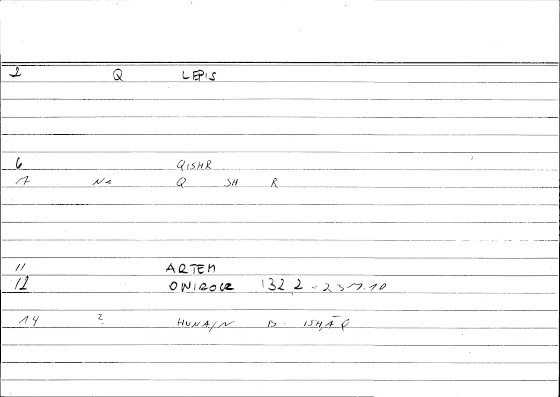 2 Q LEPIS
6 QISHR
7 Na Q SH R
11 ARTEM
12 ONIROCR 132,2 = 237.10
14 2 HUNAYN B. ISḤĀQ